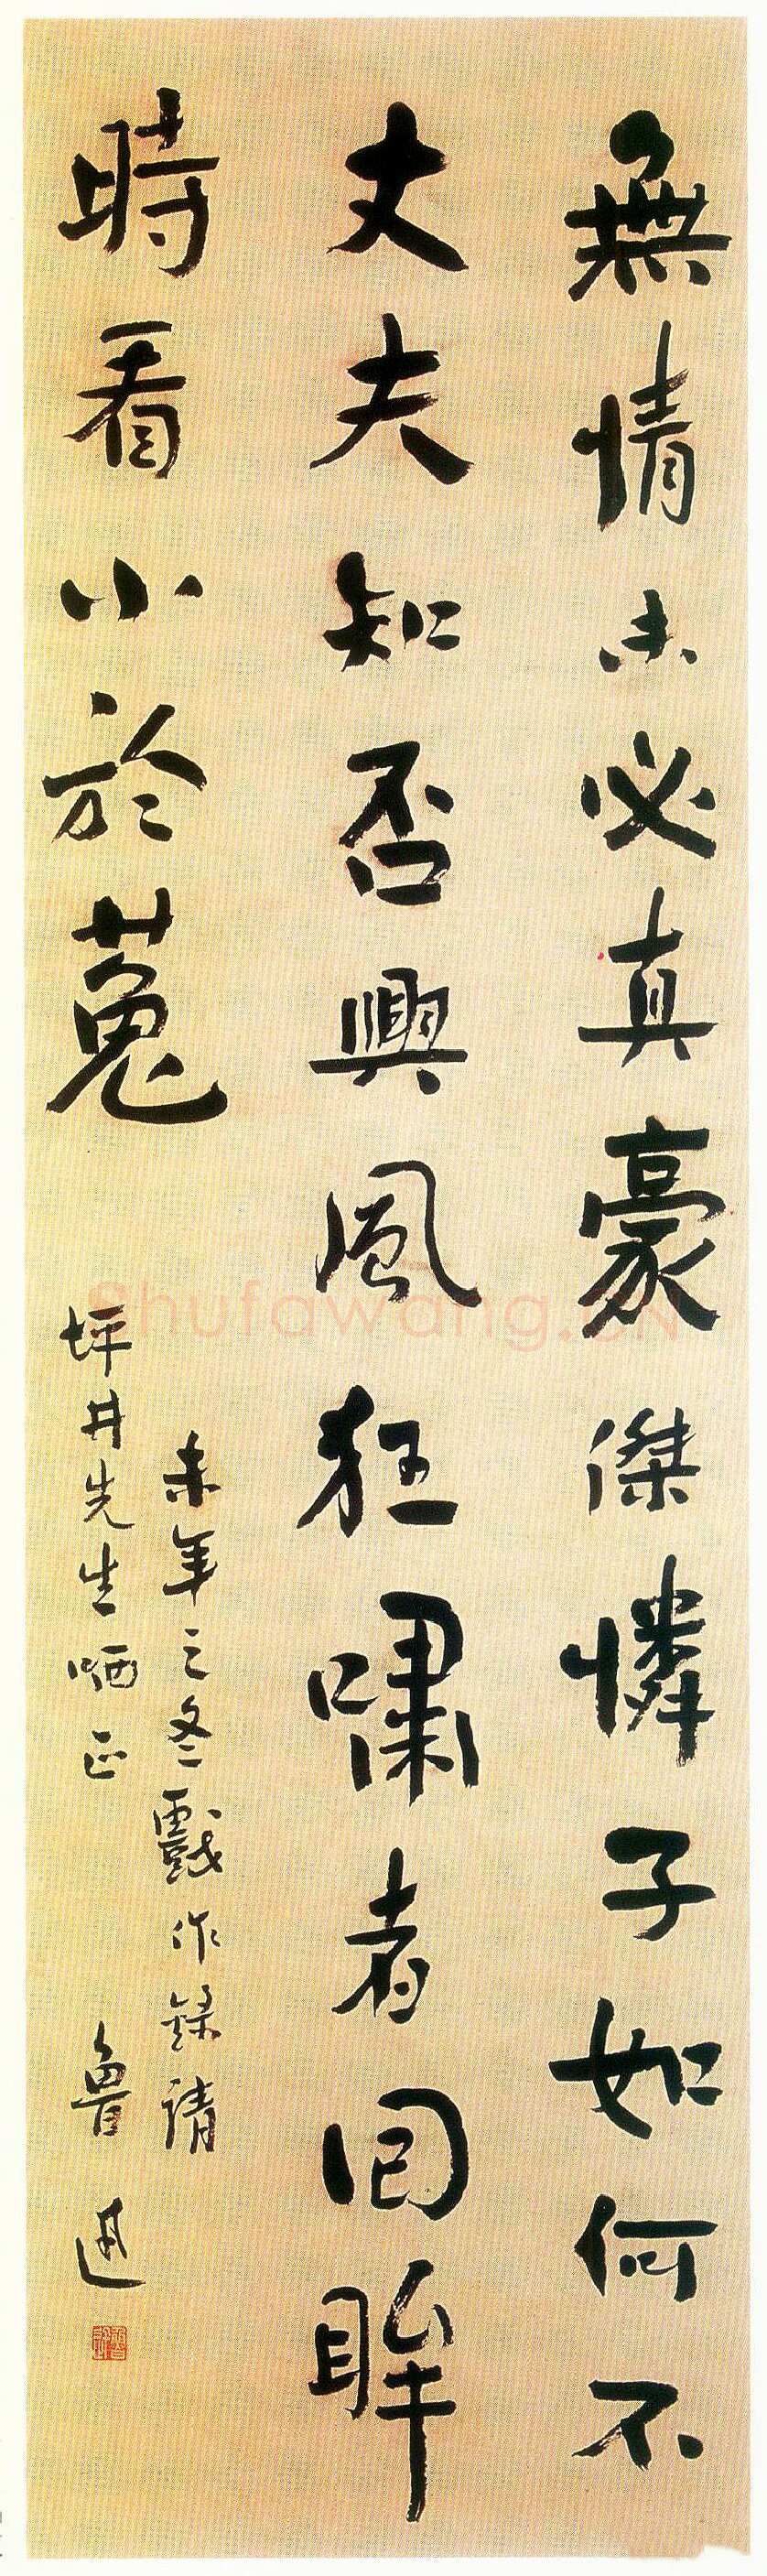 無情未必真豪傑憐子如何不
丈夫知否興風狂嘯者回眸
時看小於菟
未年之冬戲作錄請
坪井先生哂正
魯迅
Shufawang.CN